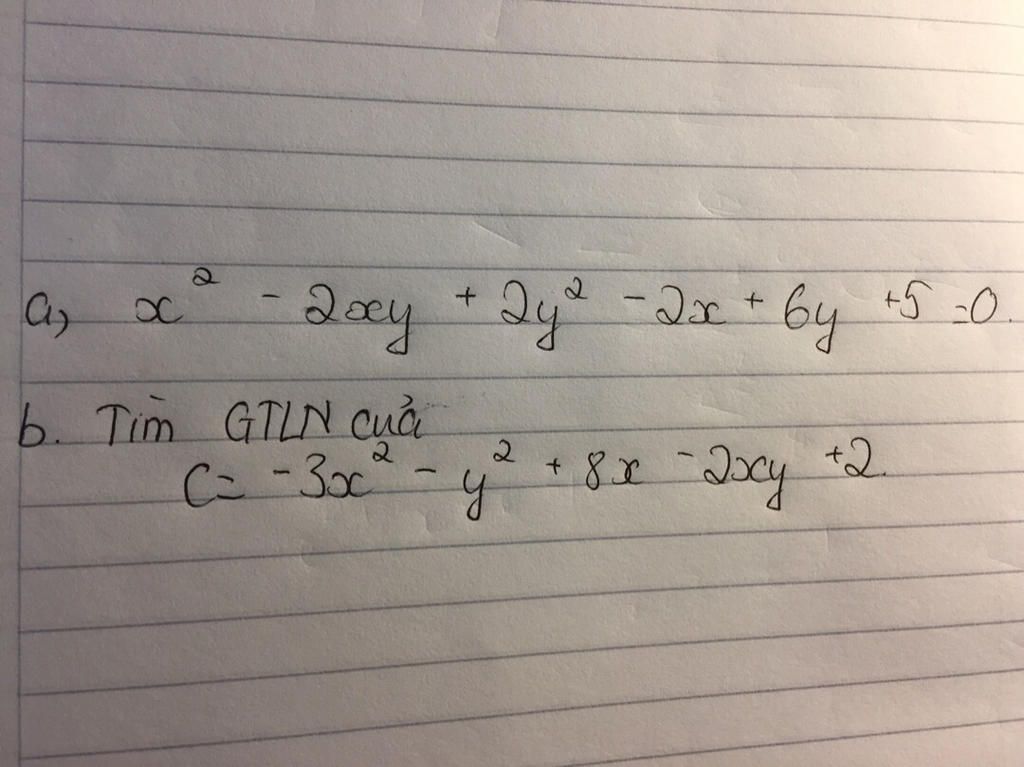 a, x² - 2xy + 2y² - 2x + 6y + 5 = 0.
b. Tìm GTLN của
C = -3x² - y² + 8x - 2xy + 2.